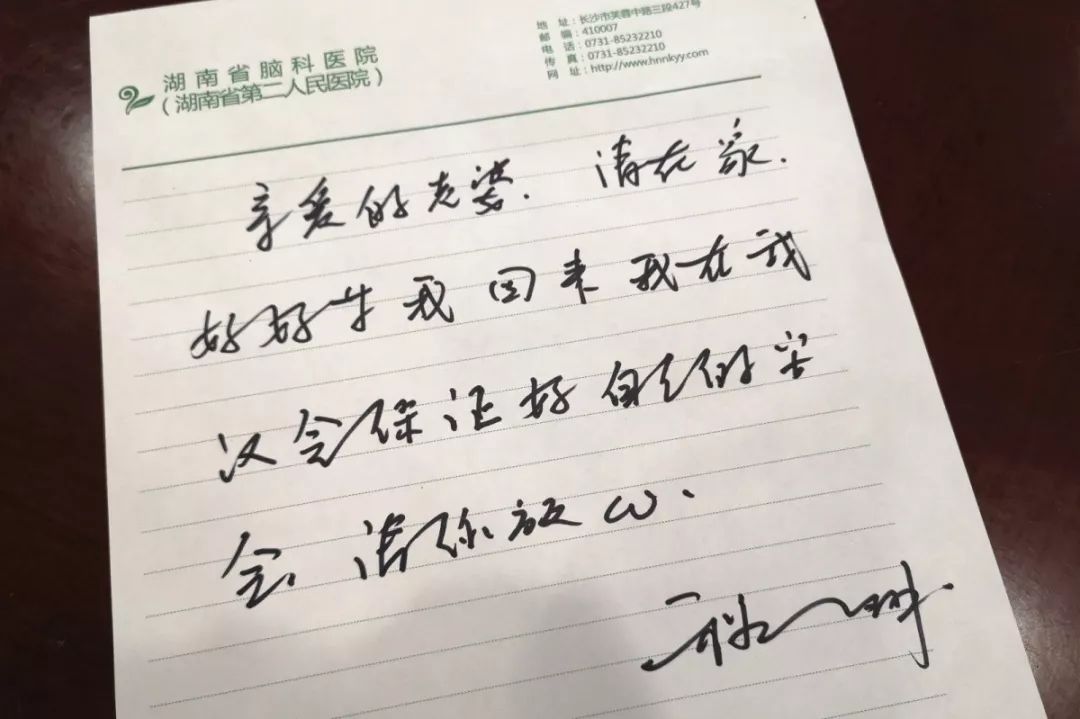 湖南省脑科医院
（湖南省第二人民医院）
地 址：长沙市芙蓉中路三段427号
邮 编：410007
电 话：0731-85232210
传 真：0731-85232210
网 址：http://www.hnnkyy.com
亲爱的老婆．请在家．
好好等我回来我在武
汉会保证好自己的安
全．请你放心．